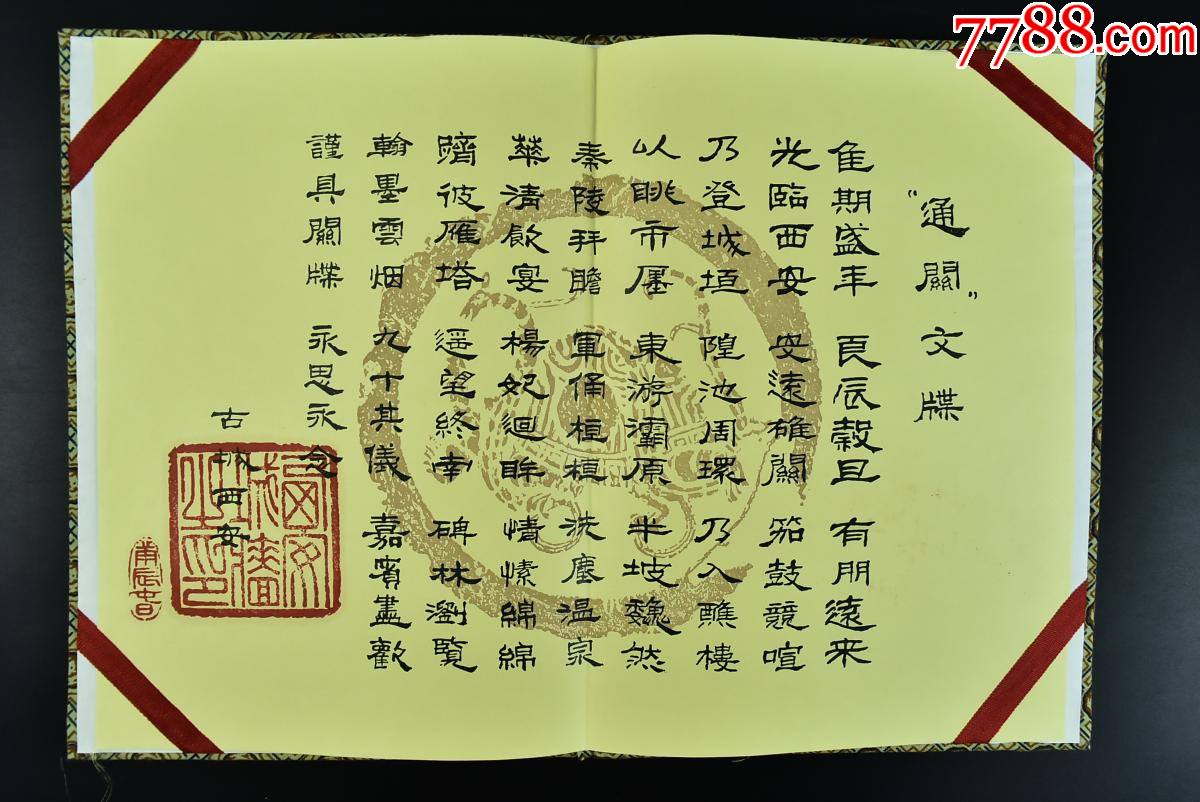 7788.com
"通關"文牒
佳期盛年 良辰穀旦 有朋遠来
光臨西安 安遠雄關 笳鼓競喧
乃登城垣 隍池周環 乃入醮樓
以眺市廛 東游灞原 半坡巍然
秦陵拜瞻 軍俑桓桓 洗塵温泉
華清飲宴 楊妃迴眸 情愫綿綿
躋彼雁塔 遥望終南 碑林瀏覧
翰墨雲烟 九十其儀 嘉賓盡歡
謹具關牒 永思永念
古城西安
西安城牆之印